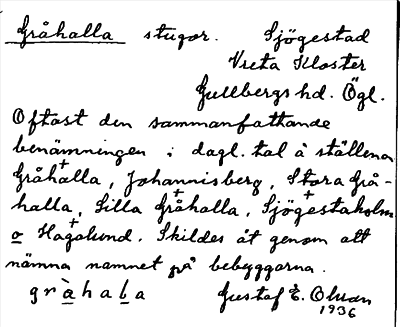 Gråhalla stugor. Sjögestad
Vreta Kloster
Gullbergs hd. Ögl.
Oftast den sammanfattande
benämningen i dagl. tal å ställena
Gråhalla, Johannisberg, Stora Grå-
halla, Lilla Gråhalla, Sjögestaholm
o Hagalund. Skildes åt genom att
nämna namnet på bebyggarna.
gràhaḷa Gustaf E. Olsson
1936